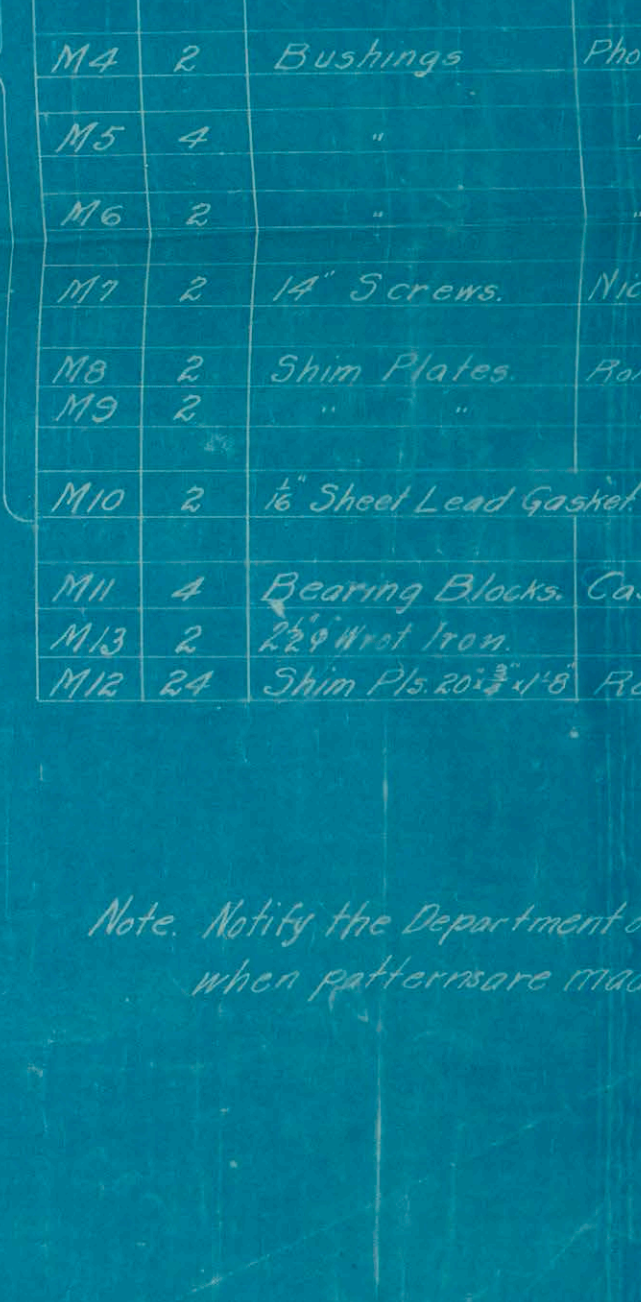 M4 2 Bushings Pho
M5 4 " "
M6 2 " "
M7 2 1/4" Screws. Nic
M8 2 Shim Plates. Rol
M9 2 " "
M10 2 1/16" Sheet Lead Gasket.
M11 4 Bearing Blocks. Cas
M13 2 2½"φ Wrot Iron.
M12 24 Shim Pls. 20"x¾"x1'-8" Ro
Note. Notify the Department o
when patterns are mad